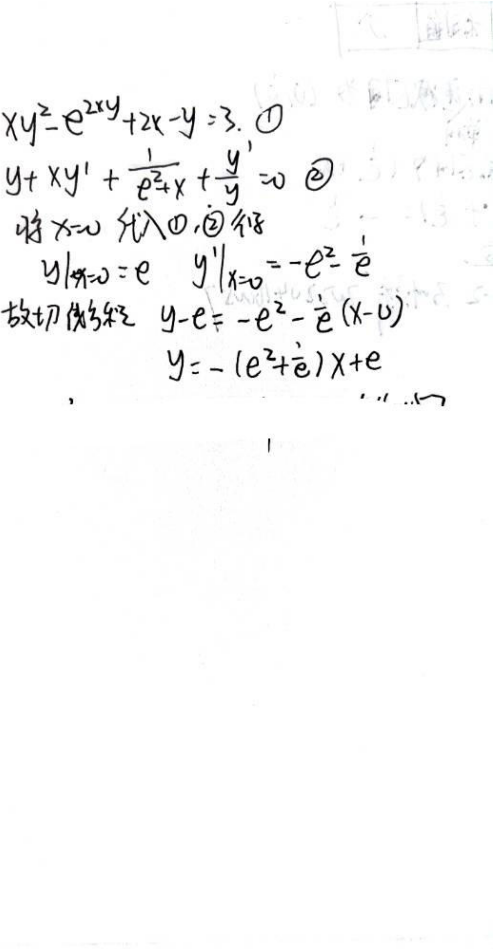 xy²-e^{2xy}+2x-y=3. ①
y+xy'+\frac{1}{e²+x}+\frac{y'}{y}=0 ②
将x=0代入①,②得
y|x=0=e y'|x=0=-e²-\frac{1}{e}
故切线方程 y-e=-e²-\frac{1}{e}(x-0)
y=-(e²+\frac{1}{e})x+e